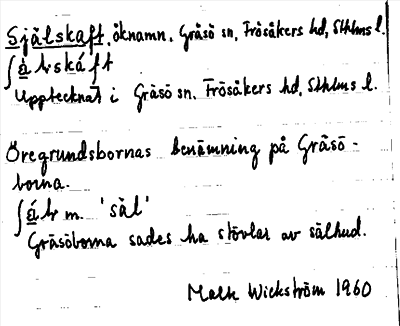 Själskaft, öknamn. Gräsö sn, Frösåkers hd, Sthlms l.
Upptecknat i Gräsö sn. Frösåkers hd, Sthlms l.
Öregrundsbornas benämning på Gräsö-
borna.
m. 'säl'
Gräsöborna sades ha stövlar av sälhud.
Wickström 1960